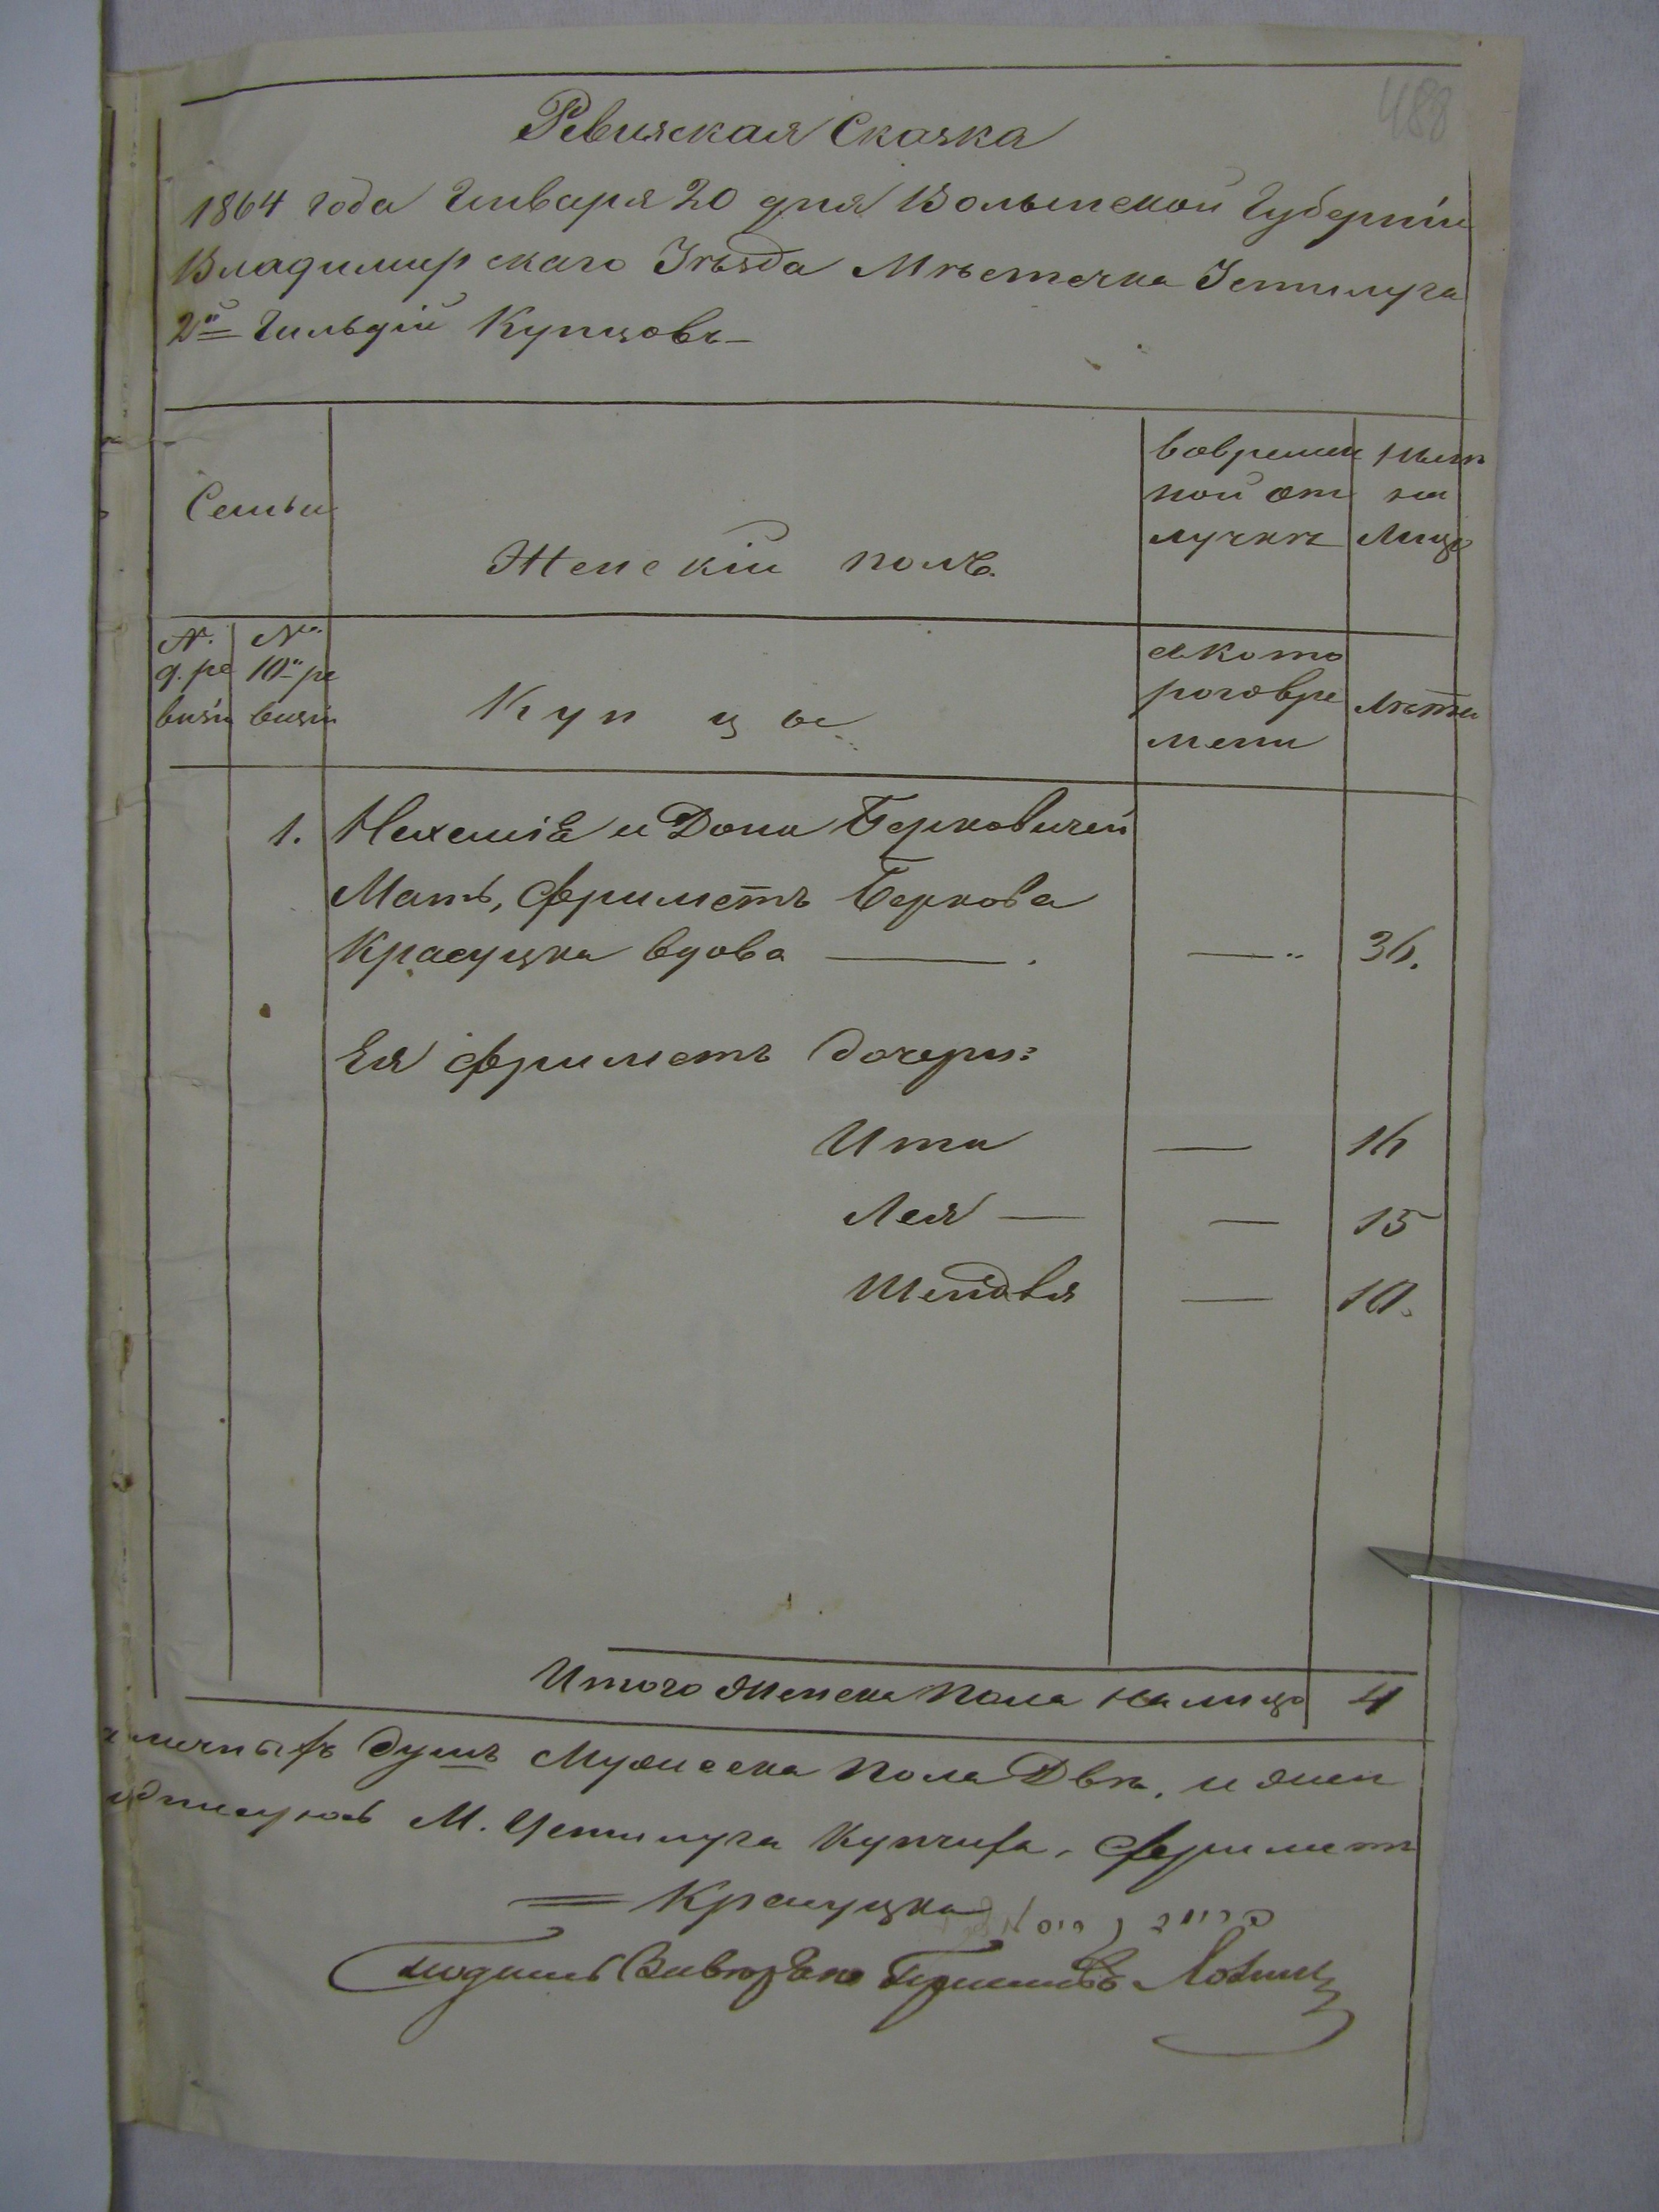 488
Ревизская Сказка
1864 года Генваря 20 дня Волынской Губерніи
Владимирскаго Уѣзда Мѣстечка Устилуга
2й Гильдіи Купцовъ —
Семьи
Женскій полъ.
вовремен
ной от
лучкѣ
Нали
Лицо
№.
9. ре
визіи
№.
10й ре
визіи
Куп цы
съ кото
роговре
мени
Лѣта
1. Нехеміѣ и Дона Берковичей
Мать, Фриметъ Беркова
Красуцка вдова — . — 36.
Ея Фриметъ дочери:
Ита — 16
Лея — — 15
Шейдвля — 10.
Итого Женска Пола на лицо 4
душъ Мужеска Пола Двѣ, и жен
М. Устилуга Купчиха, Фриметъ
= Красуцка